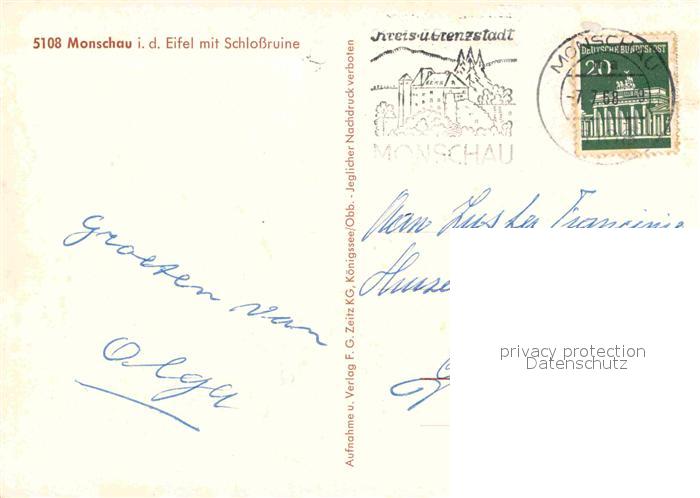 5108 Monschau i. d. Eifel mit Schloßruine
Kreis-u. Grenzstadt
MONSCHAU
MONSCHAU
-7.7.68
DEUTSCHE BUNDESPOST
20
Aufnahme u. Verlag F. G. Zeitz KG, Königssee/Obb. - Jeglicher Nachdruck verboten
groeten van
Olga
Aan Zuster Francine
privacy protection
Datenschutz